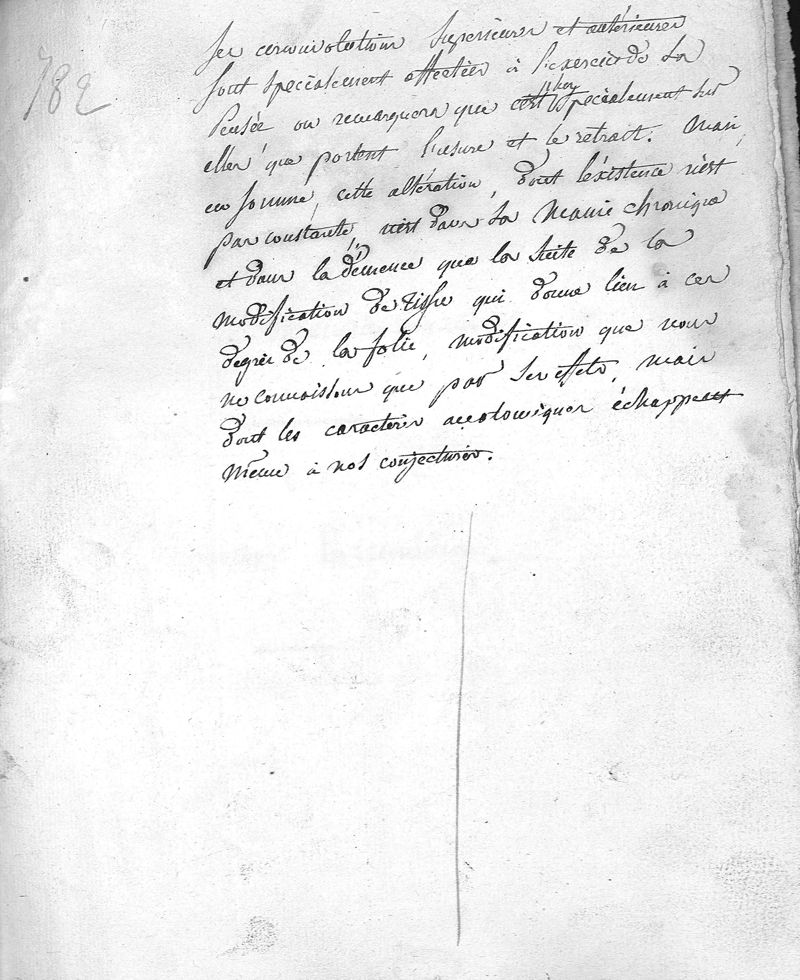 782
les circonvolutions supérieures et antérieures
sont spécialement affectées à l'exercice de la
Pensée on remarquera que c'est spécialement sur
elles que portent l'usure et le retrait. Mais,
en somme, cette altération, dont l'existence n'est
pas constante, n'est dans la Manie chronique
et dans la démence que la suite de la
modification de tissu qui donne lieu à ces
degrés de la folie, modification que nous
ne connaissons que par ses effets, mais
dont les caractères anatomiques échappent
même à nos conjectures.